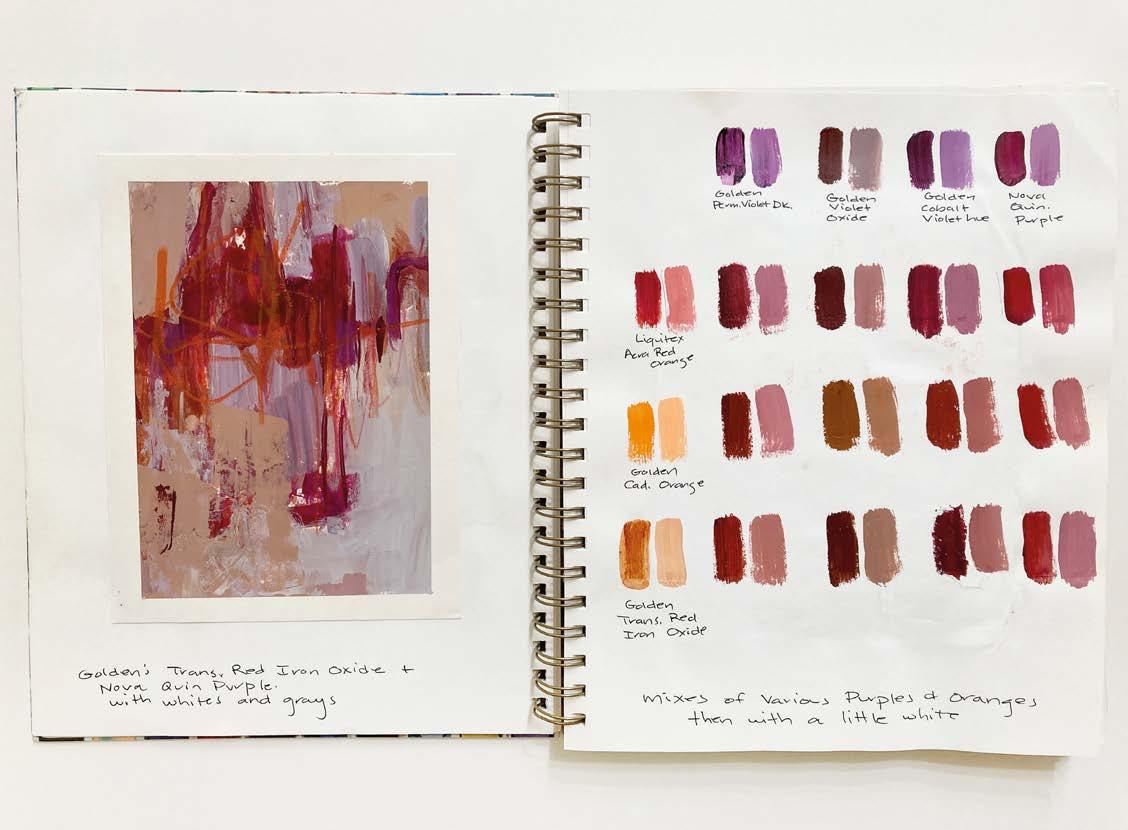 Golden's Trans. Red Iron Oxide +
Nova Quin Purple.
with whites and grays
Golden
Perm. Violet Dk.
Golden
Violet
Oxide
Golden
Cobalt
Violet Hue
Nova
Quin.
Purple
Liquitex
Acra Red
Orange
Golden
Cad. Orange
Golden
Trans. Red
Iron Oxide
Mixes of Various Purples & Oranges
then with a little white